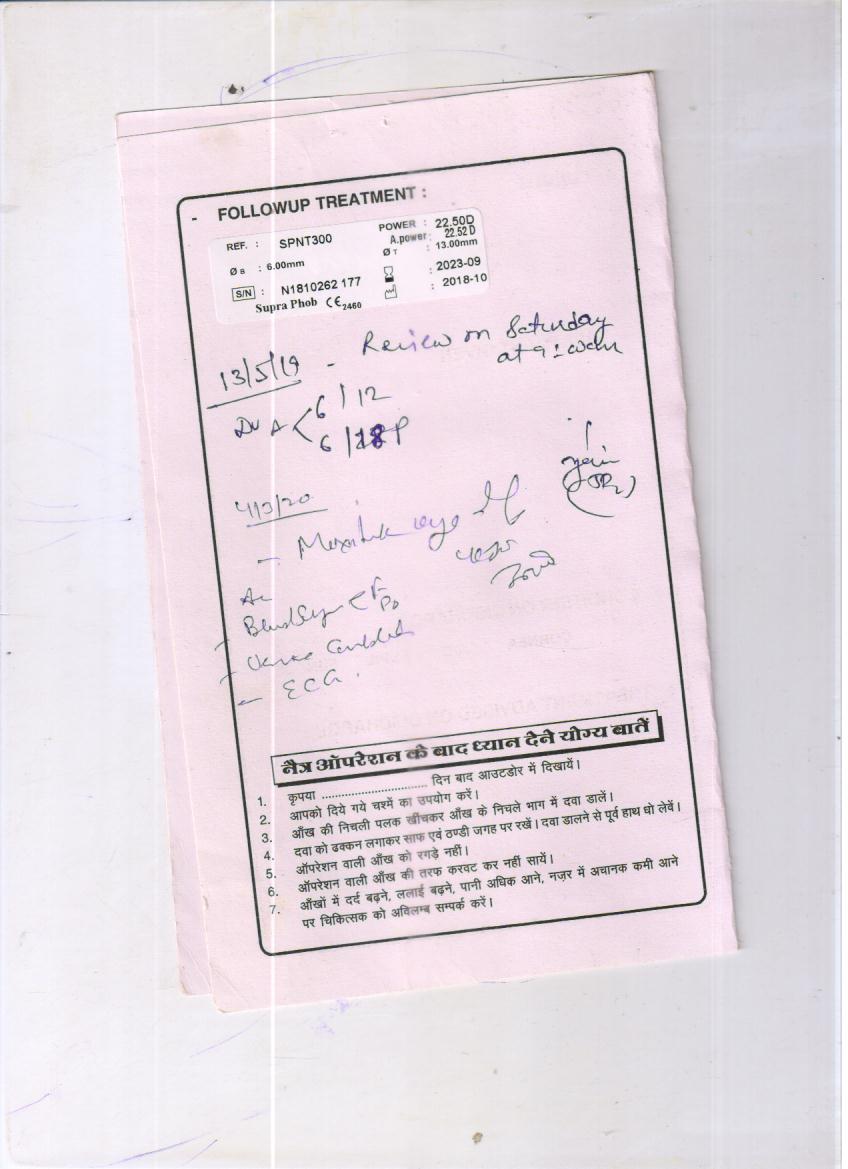 - FOLLOWUP TREATMENT :
REF. : SPNT300 POWER : 22.50D
A.power : 22.52 D
Ø B : 6.00mm Ø T : 13.00mm
2023-09
S/N : N1810262 177 : 2018-10
Supra Phob CE 2460
13/5/19 - Review on Saturday
at 9:
6/12
6/18P
4/3/20
- ECG.
नैत्र ऑपरेशन के बाद ध्यान देने योग्य बातें
1. कृपया .............................. दिन बाद आउटडोर में दिखायें।
2. आपको दिये गये चश्में का उपयोग करें।
3. आँख की निचली पलक खींचकर आँख के निचले भाग में दवा डालें।
4. दवा को ढक्कन लगाकर साफ एवं ठण्डी जगह पर रखें। दवा डालने से पूर्व हाथ धो लेवें।
5. ऑपरेशन वाली आँख को रगड़े नहीं।
6. ऑपरेशन वाली आँख की तरफ करवट कर नहीं सायें।
7. आँखों में दर्द बढ़ने, ललाई बढ़ने, पानी अधिक आने, नज़र में अचानक कमी आने
पर चिकित्सक को अविलम्ब सम्पर्क करें।